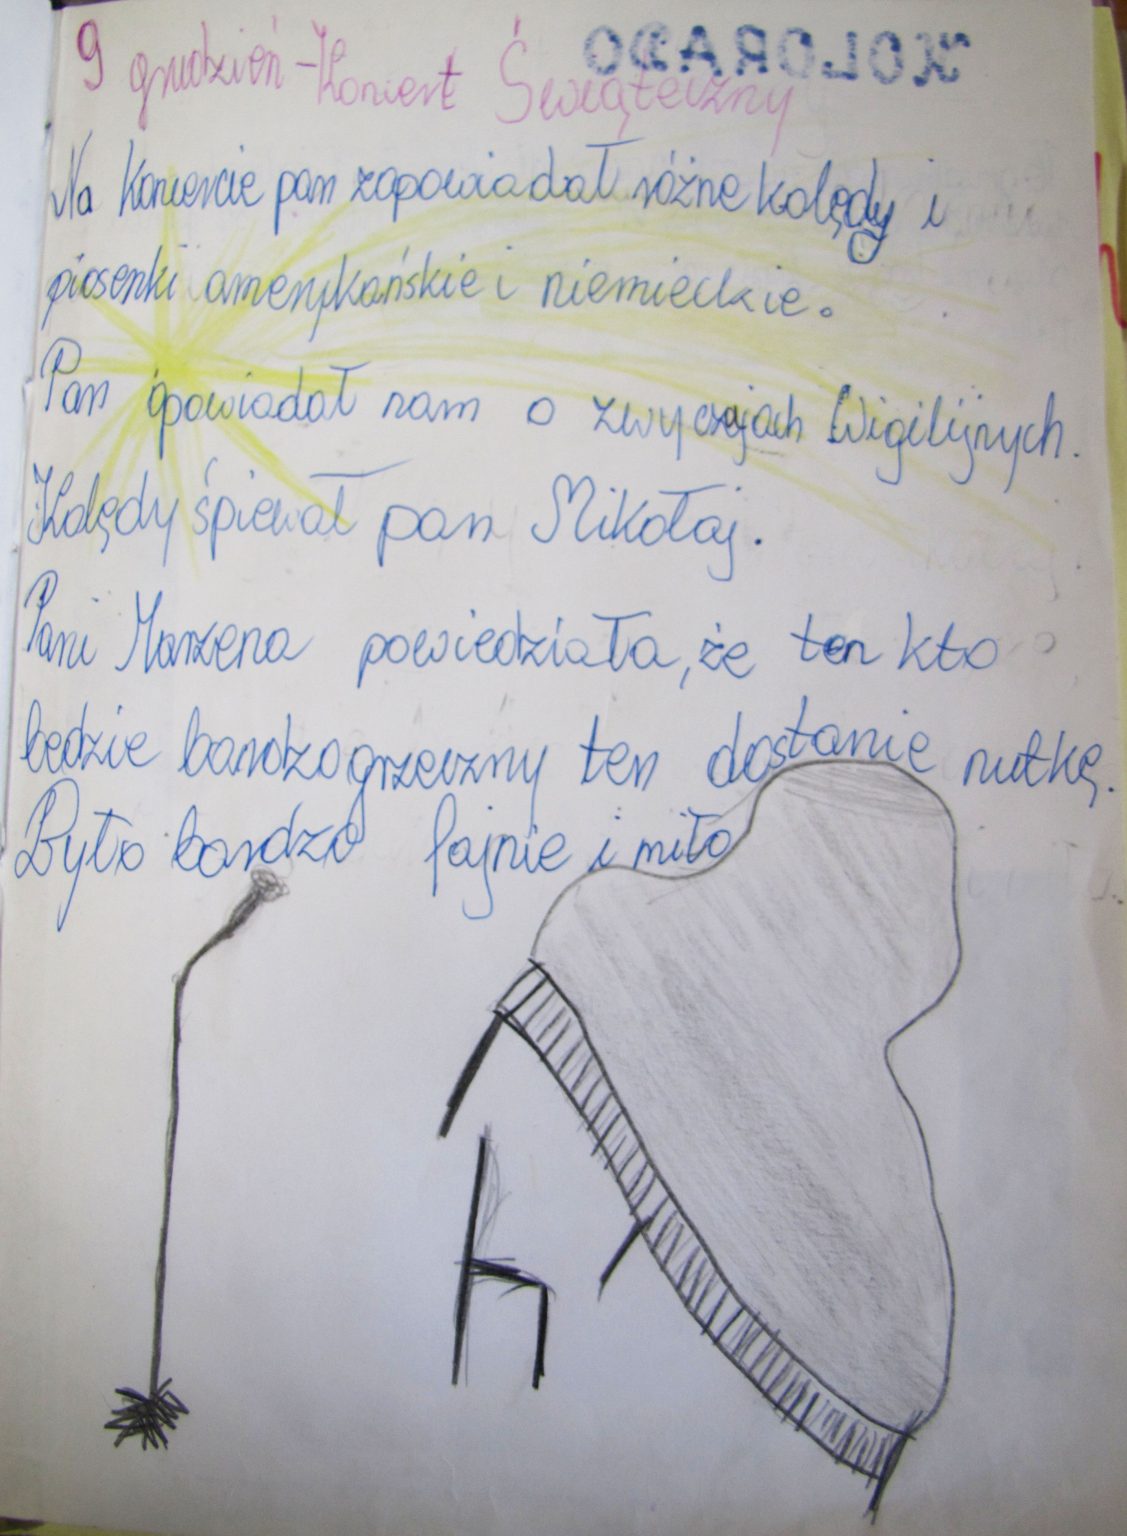 9 grudzień - Koncert Świąteczny
KOLORADO
Na koncercie pan zapowiadał różne kolędy i
piosenki amerykańskie i niemieckie.
Pan opowiadał nam o zwyczajach Wigilijnych.
Kolędy śpiewał pan Mikołaj.
Pani Marzena powiedziała, że ten kto
będzie bardzo grzeczny ten dostanie nutkę.
Było bardzo fajnie i miło